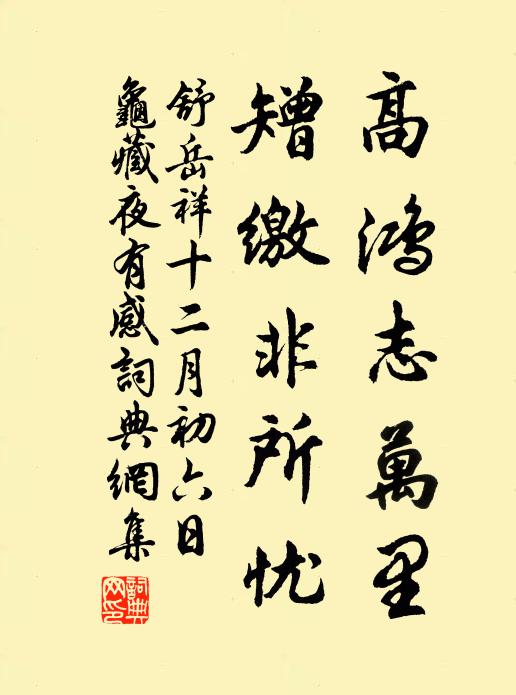 高鸿志萬里
矰缴非所忧
舒岳祥十二月初六日
龜藏夜有感詞典網集
詞典网印